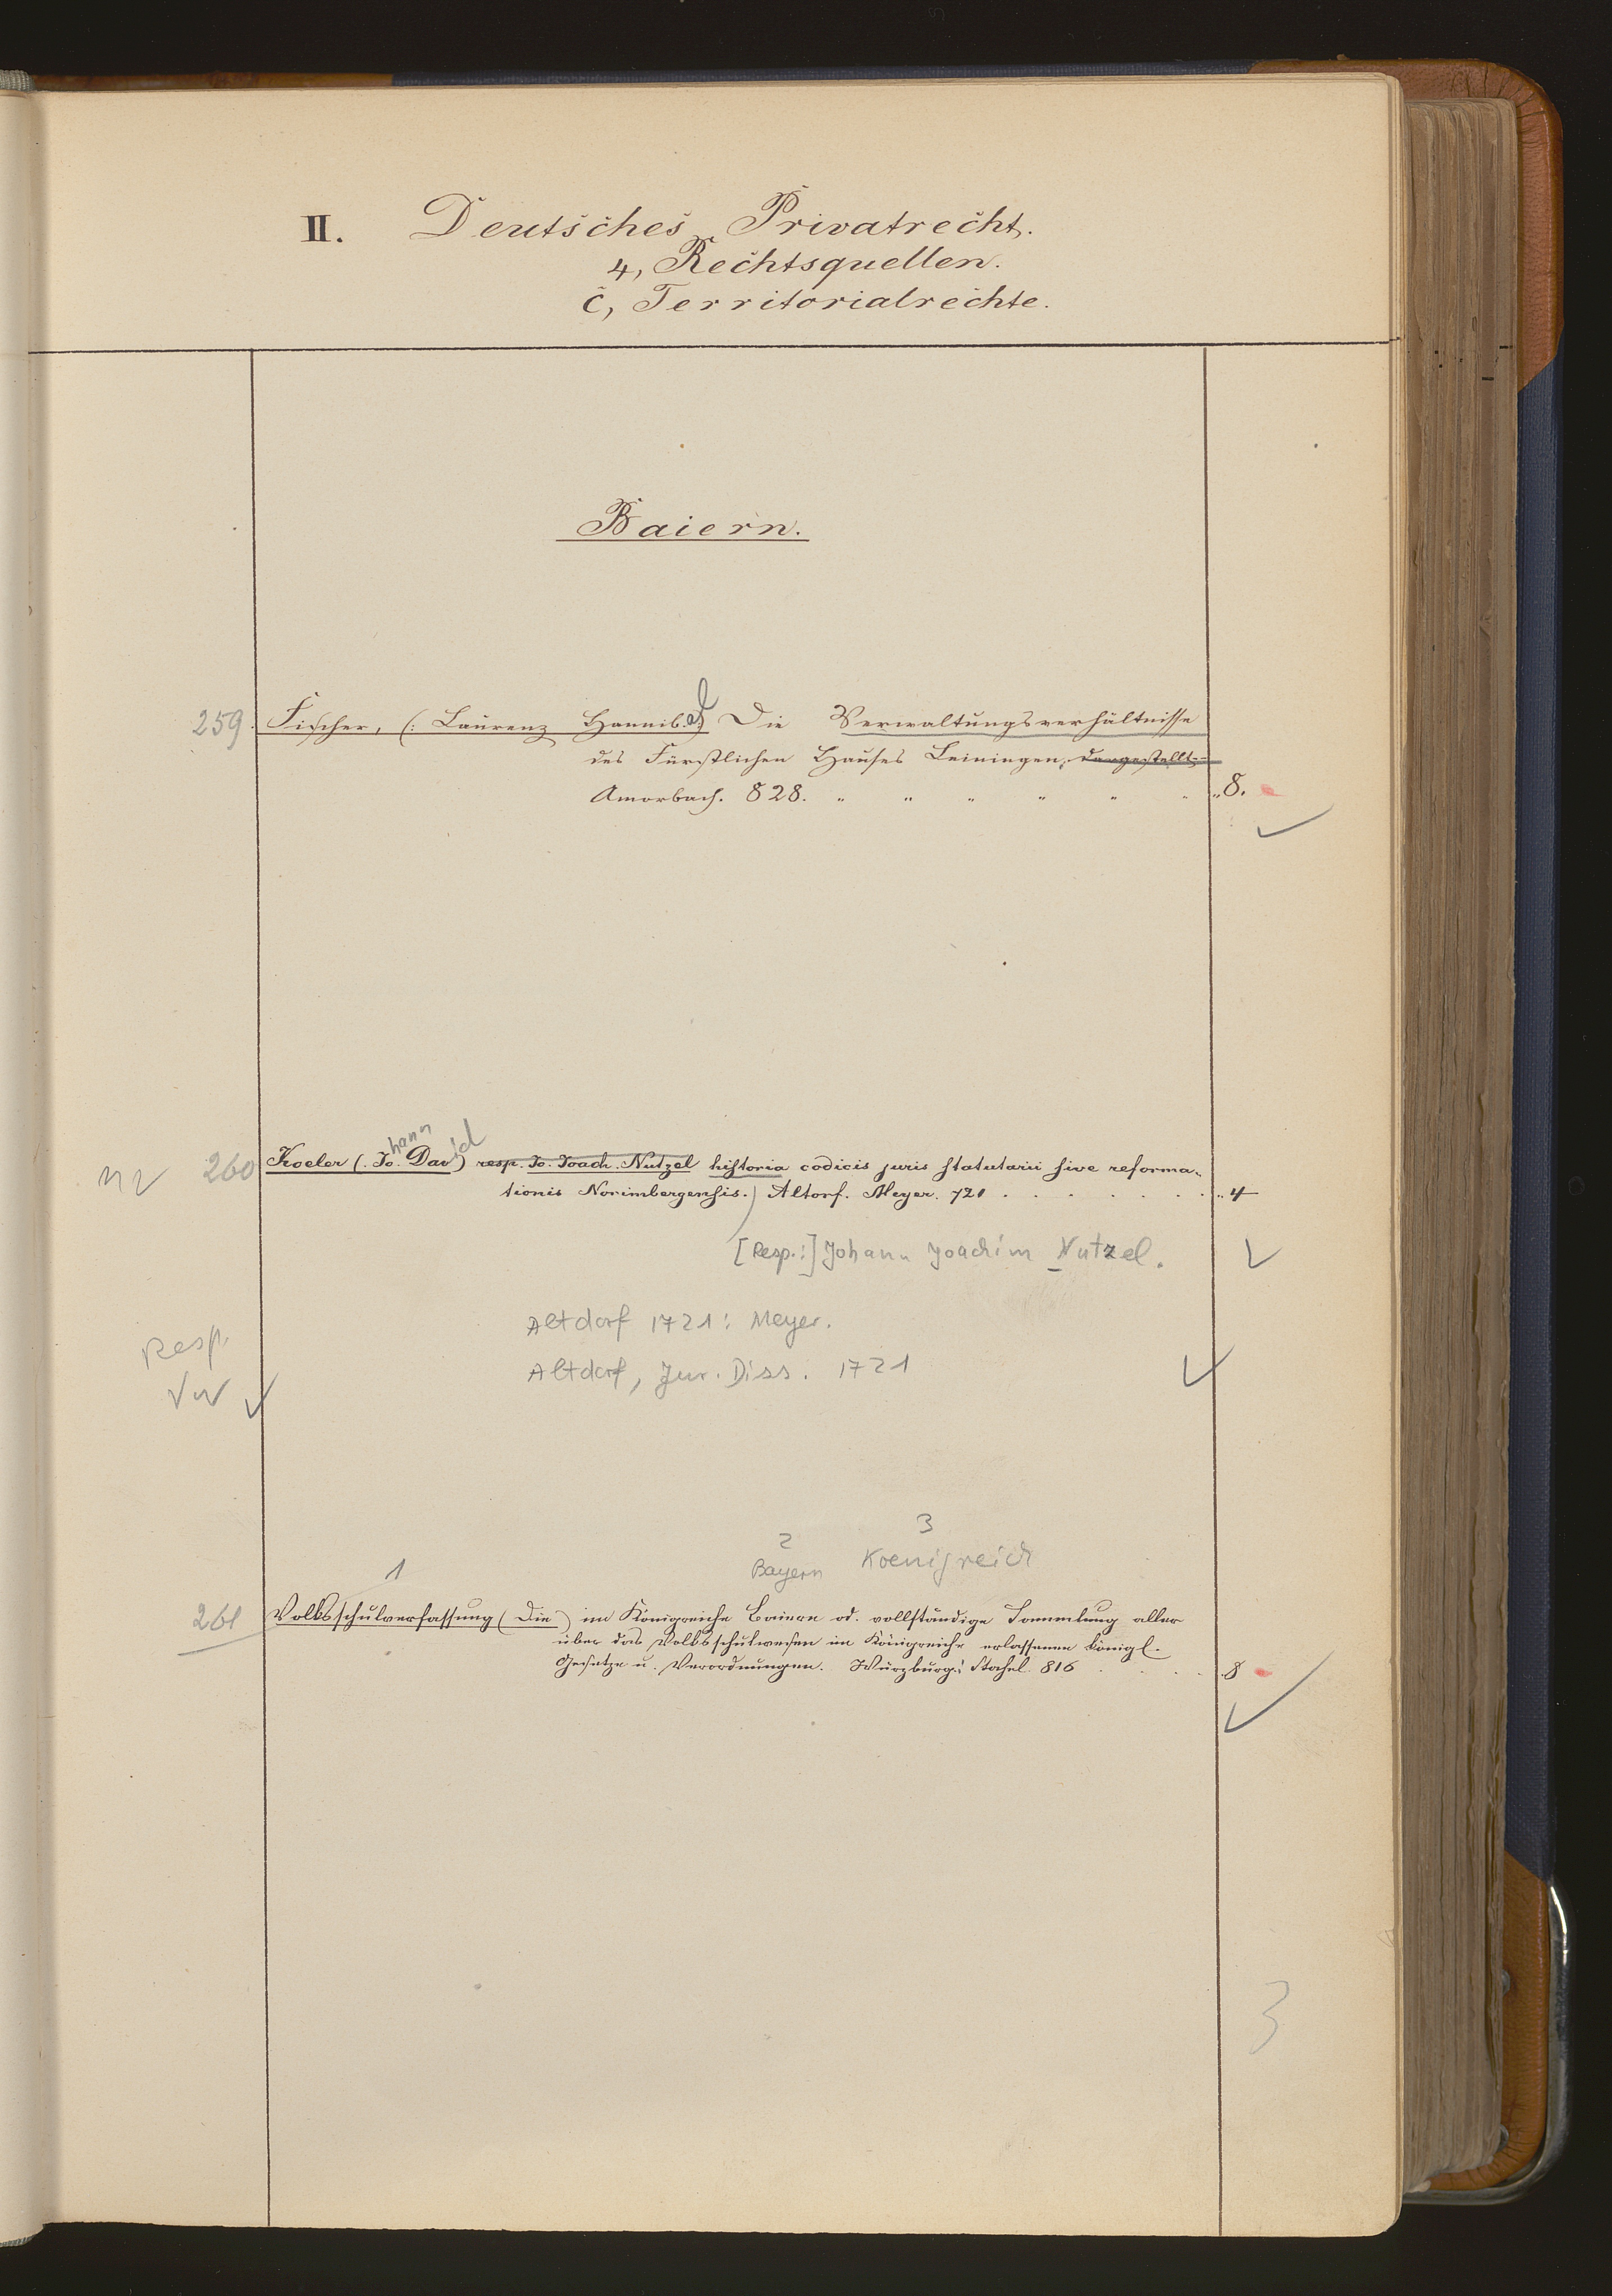 II. Deutsches Privatrecht.
4, Rechtsquellen.
c, Territorialrechte.
Baiern.
259. Fischer, (: Laurenz Hannib. al) Die Verwaltungsverhältnisse
des Fürstlichen Hauses Leiningen, dargestellt.
Amorbach. 828. " " " " " " 8.
hann id
nr 260 Koeler (. Jo. Dav) resp. Jo. Joach. Nutzel historia codicis juris statutarii sive reforma-
tionis Norimbergensis.) Altorf. Meyer. 721 . . . . . . . 4
[Resp.:] Johann Joachim Nutzel.
Altdorf 1721: Meyer.
Resp.
Altdorf, Jur. Diss. 1721
Vw
3
2
Koenigreich
1 Bayern
261 Volksschulverfassung (Die) im Königreiche Baiern od. vollständige Sammlung aller
über das Volksschulwesen im Königreiche erlassenen königl.
Gesetze u. Verordnungen. Würzburg: Stahel. 816 . . . . 8
3